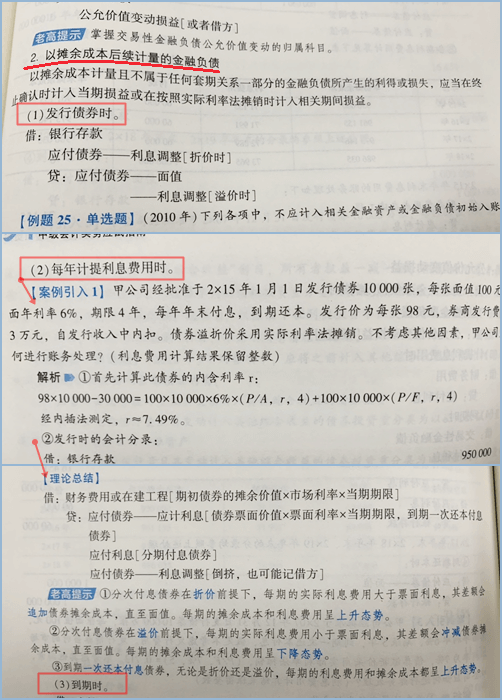 公允价值变动损益[或者借方]
老高提示 掌握交易性金融负债公允价值变动的归属科目。
2. 以摊余成本后续计量的金融负债
以摊余成本计量且不属于任何套期关系一部分的金融负债所产生的利得或损失，应当在终
止确认时计入当期损益或在按照实际利率法摊销时计入相关期间损益。
(1)发行债券时。
借：银行存款
应付债券——利息调整[折价时]
贷：应付债券——面值
——利息调整[溢价时]
【例题 25·单选题】(2010年)下列各项中，不应计入相关金融资产或金融负债初始入账
中级会计实务应试指南
(2)每年计提利息费用时。
【案例引入1】 甲公司经批准于2×15年1月1日发行债券10 000张，每张面值100元
面年利率6%，期限4年，每年年末付息，到期还本。发行价为每张98元，券商发行费
3万元，自发行收入中内扣。债券溢折价采用实际利率法摊销。不考虑其他因素，甲公司
何进行账务处理？(利息费用计算结果保留整数)
解析 ①首先计算此债券的内含利率r：
98×10 000-30 000=100×10 000×6%×(P/A，r，4)+100×10 000×(P/F，r，4)
经内插法测定，r≈7.49%。
②发行时的会计分录：
借：银行存款 950 000
【理论总结】
借：财务费用或在建工程[期初债券的摊余价值×市场利率×当期期限]
贷：应付债券——应计利息[债券票面价值×票面利率×当期期限，到期一次还本付息
债券]
应付利息[分期付息债券]
应付债券——利息调整[倒挤，也可能记借方]
老高提示 ①分次付息债券在折价前提下，每期的实际利息费用大于票面利息，其差额会
追加债券摊余成本，直至面值。每期的摊余成本和利息费用呈上升态势。
②分次付息债券在溢价前提下，每期的实际利息费用小于票面利息，其差额会冲减债券摊
余成本，直至面值。每期的摊余成本和利息费用呈下降态势。
③到期一次还本付息债券，无论是折价还是溢价，每期的利息费用和摊余成本都呈上升态势。
(3)到期时。